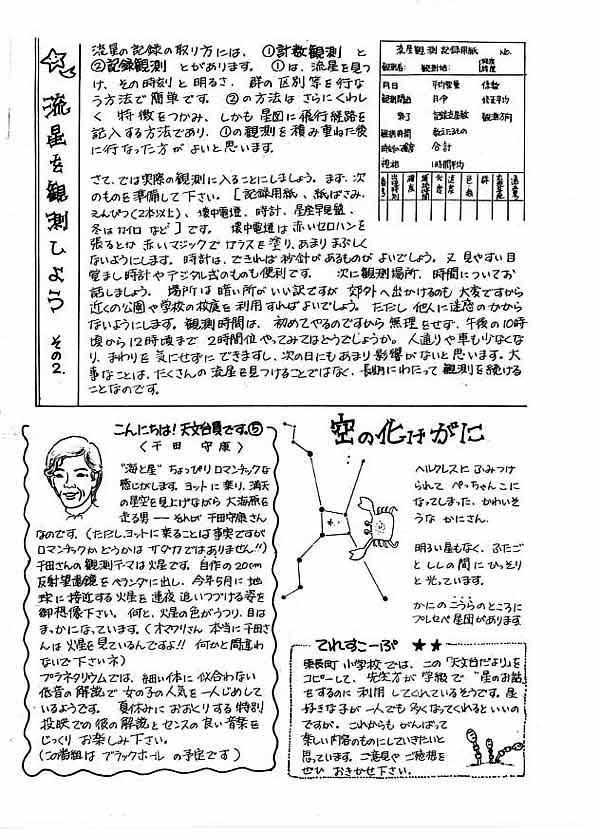 流星を観測しよう その2.
流星の記録の取り方には、①計数観測 と
②記録観測 とがあります。①は、流星を見つ
け、その時刻と明るさ、群の区別等を行な
う方法で簡単です。②の方法はさらにくわし
く特徴をつかみ、しかも星図に飛行経路を
記入する方法であり、①の観測を積み重ねた後
に行なった方がよいと思います。
流星観測記録用紙 No.
観測者: 観測地:
月日 平均雲量
観測開始
終了
観測時間
合計
1時間平均
さて、では実際の観測に入ることにしましょう。まず、次
のものを準備して下さい。[記録用紙、紙ばさみ、
えんぴつ(2本以上)、懐中電燈、時計、星座早見盤、
冬はカイロ など]です。 懐中電燈は赤いセロハンを
張るとか 赤いマジックでガラスを塗り、あまりまぶしく
ないようにします。時計は、できれば秒針があるものがよいでしょう。又 見やすい目
覚まし時計やデジタル式のものも便利です。 次に観測場所、時間についてお
話しましょう。 場所は暗い所がいい訳ですが 郊外へ出かけるのも大変ですから
近くの公園や学校の校庭を利用すればよいでしょう。ただし 他人に迷惑のかから
ないようにします。観測時間は、初めてやるのですから無理をせず、午後の10時
頃から12時頃まで 2時間位やってみてはどうでしょうか。人通りや車も少なくな
り、まわりを気にせずにできますし、次の日にもあまり影響がないと思います。大
事なことは、たくさんの流星を見つけることではなく、長期にわたって観測を続ける
ことなのです。
こんにちは!天文台員です。⑤
〈千田 守康〉
"海と星" ちょっぴりロマンチックな
感じがします。ヨットに乗り、満天
の星空を見上げながら 大海原を
走る男 ― それが千田守康さん
なのです。(ただし、ヨットに乗ることは事実ですが
ロマンチックかどうかは サダカではありません!!)
千田さんの観測テーマは火星です。自作の20cm
反射望遠鏡をベランダに出し、今年5月に地
球に接近する火星を連夜追いつづける姿を
御想像下さい。何と、火星の色がうつり、目は
まっかになっています。(オマワリさん 本当に千田さ
んは 火星を見ているんですよ!! 何かと間違わ
ないで下さいネ)
プラネタリウムでは、細い体に似合わない
低音の解説で 女の子の人気を一人じめして
いるようです。 夏休みにおおくりする特別
投映での彼の解説とセンスの良い音楽を
じっくり お楽しみ下さい。
(この番組は ブラックホール の予定です)
空の化けがに
ヘルクレスに ふみつけ
られて ぺっちゃんこに
なってしまった、かわいそ
うな かにさん。
明るい星もなく、ふたご
と ししの間に ひっそり
と光っています。
かにのこうらのところに
プレセペ星団があります
てれすこーぷ ★★
東長町小学校では、この「天文台だより」を
コピーして、先生方が学級で "星のお話"
をするのに利用してくれているそうです。星
好きな子が一人でも多くなってくれるといいの
ですが。これからもがんばって
楽しい内容のものにしていきたいと
思っています。ご意見やご感想を
ぜひ おきかせ下さい。